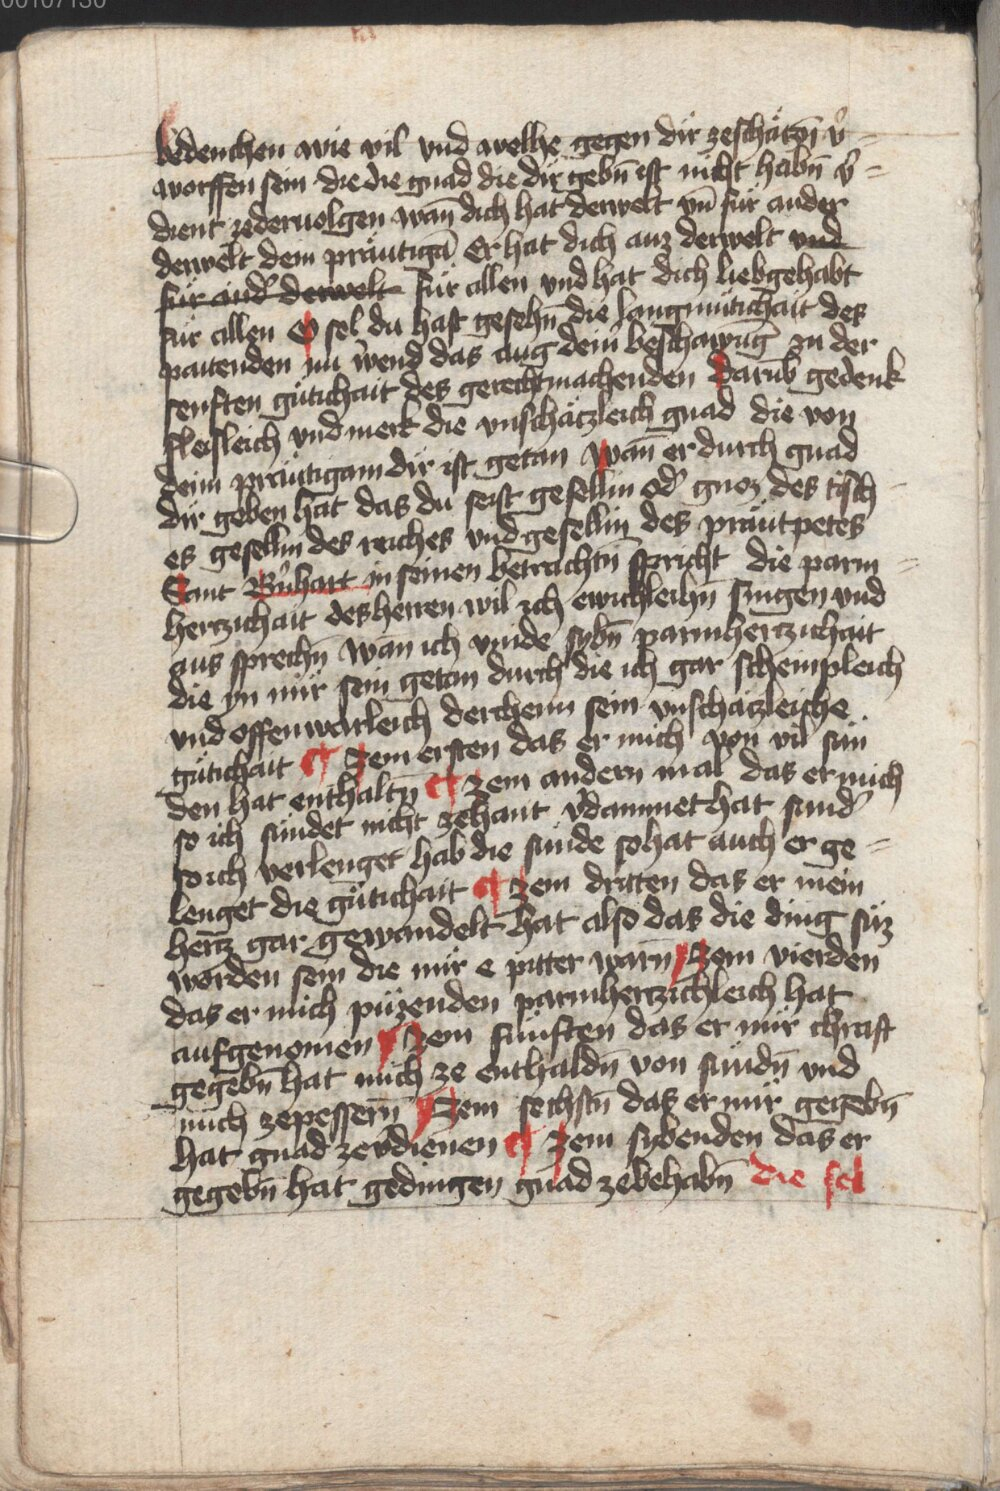 bedenchen wie vil vnd welhe gegen dir zeschäczn̄ v̓ =
worffen sein die die gnad die dir gebn̄ ist nicht habn̄ v̓ =
dient zederuolgen wan̄ dich hat derwelt vn̄ für ander
derwelt dein präutigā Er hat dich auz derwelt vnd
für and̓ derwelt für allen vnd hat dich liebgehabt
für allen O sel du hast gesehn̄ die langmütichait des
paitenden nu v̓wend das aug dein̓ beschawūg zu der
senften gütichait des gerechtmachenden Darūb gedenk
fleisleich vnd merk die vnschäczleich gnad die von
deim präutigam dir ist getan Wan̄ er durch gnad
dir geben hat das du seist gesellin od̓ gnoz des tisch =
es gesellin des reiches vnd gesellin des präutpetes
Sant Bn̓hart in seinen betrachtn̄ spricht die parm =
herczichait des herren wil ich ewichleihn̄ singen vnd
aus sprechn̄ wan̄ ich vinde sybn̄ parmherczichait
die yn mir sein getan durch die ich gar scheinpleich
vnd offenwarleich derchenn sein vnschäczleiche
gütichait ¶ Zem ersten das er mich von vil sün
den hat enthaltn̄ ¶ Zem andern mal das er mich
so ich sündet nicht zehant v̓dammet hat sund̓
so ich verlenget hab die sünde so hat auch er ge =
lenget die gütichait ¶ Zem dritten das er mein
hercz gar gewandelt hat also das die ding süz
worden sein die mir e pitter warn̄ Zem vierden
das er mich püzenden parmherczichleich hat
aufgenomen Zem fünften das er mir chraft
gegebn̄ hat mich ze enthaldn̄ von sündn̄ vnd
mich zepessern̄ Zem sechstn̄ das er mir gegebn̄
hat gnad zev̓dienen ¶ Zem sybenden das er
gegebn̄ hat gedingen gnad zebehabn̄ die sel